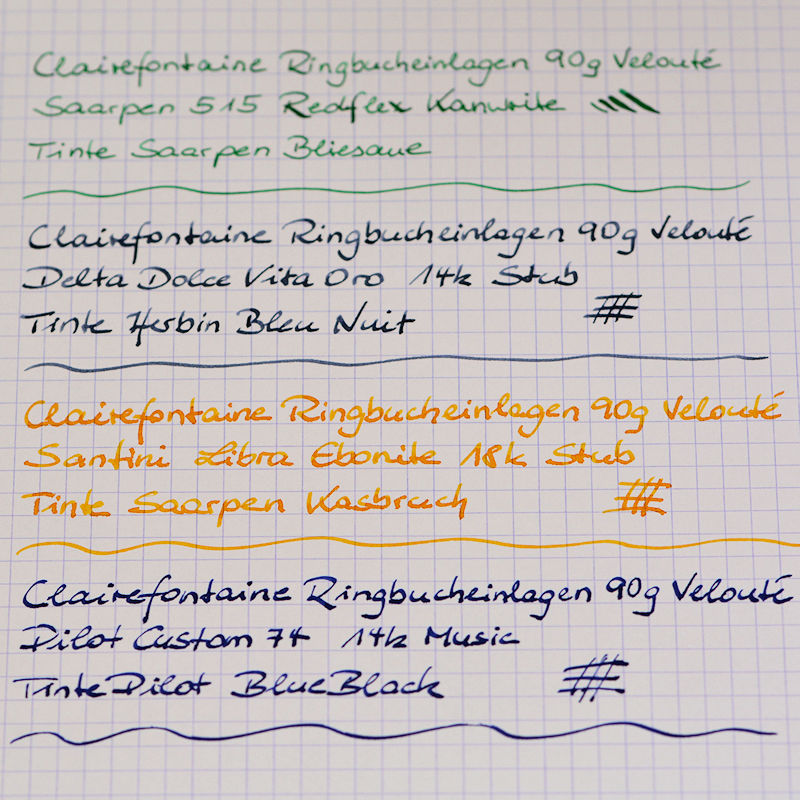 Clairefontaine Ringbucheinlagen 90g Velouté
Saarpen 515 Redflex Kanwrite
Tinte Saarpen Bliesaue
Clairefontaine Ringbucheinlagen 90g Velouté
Delta Dolce Vita Oro 14k Stub
Tinte Herbin Bleu Nuit
Clairefontaine Ringbucheinlagen 90g Velouté
Santini Libra Ebonite 18k Stub
Tinte Saarpen Kasbruch
Clairefontaine Ringbucheinlagen 90g Velouté
Pilot Custom 74 14k Music
Tinte Pilot BlueBlack